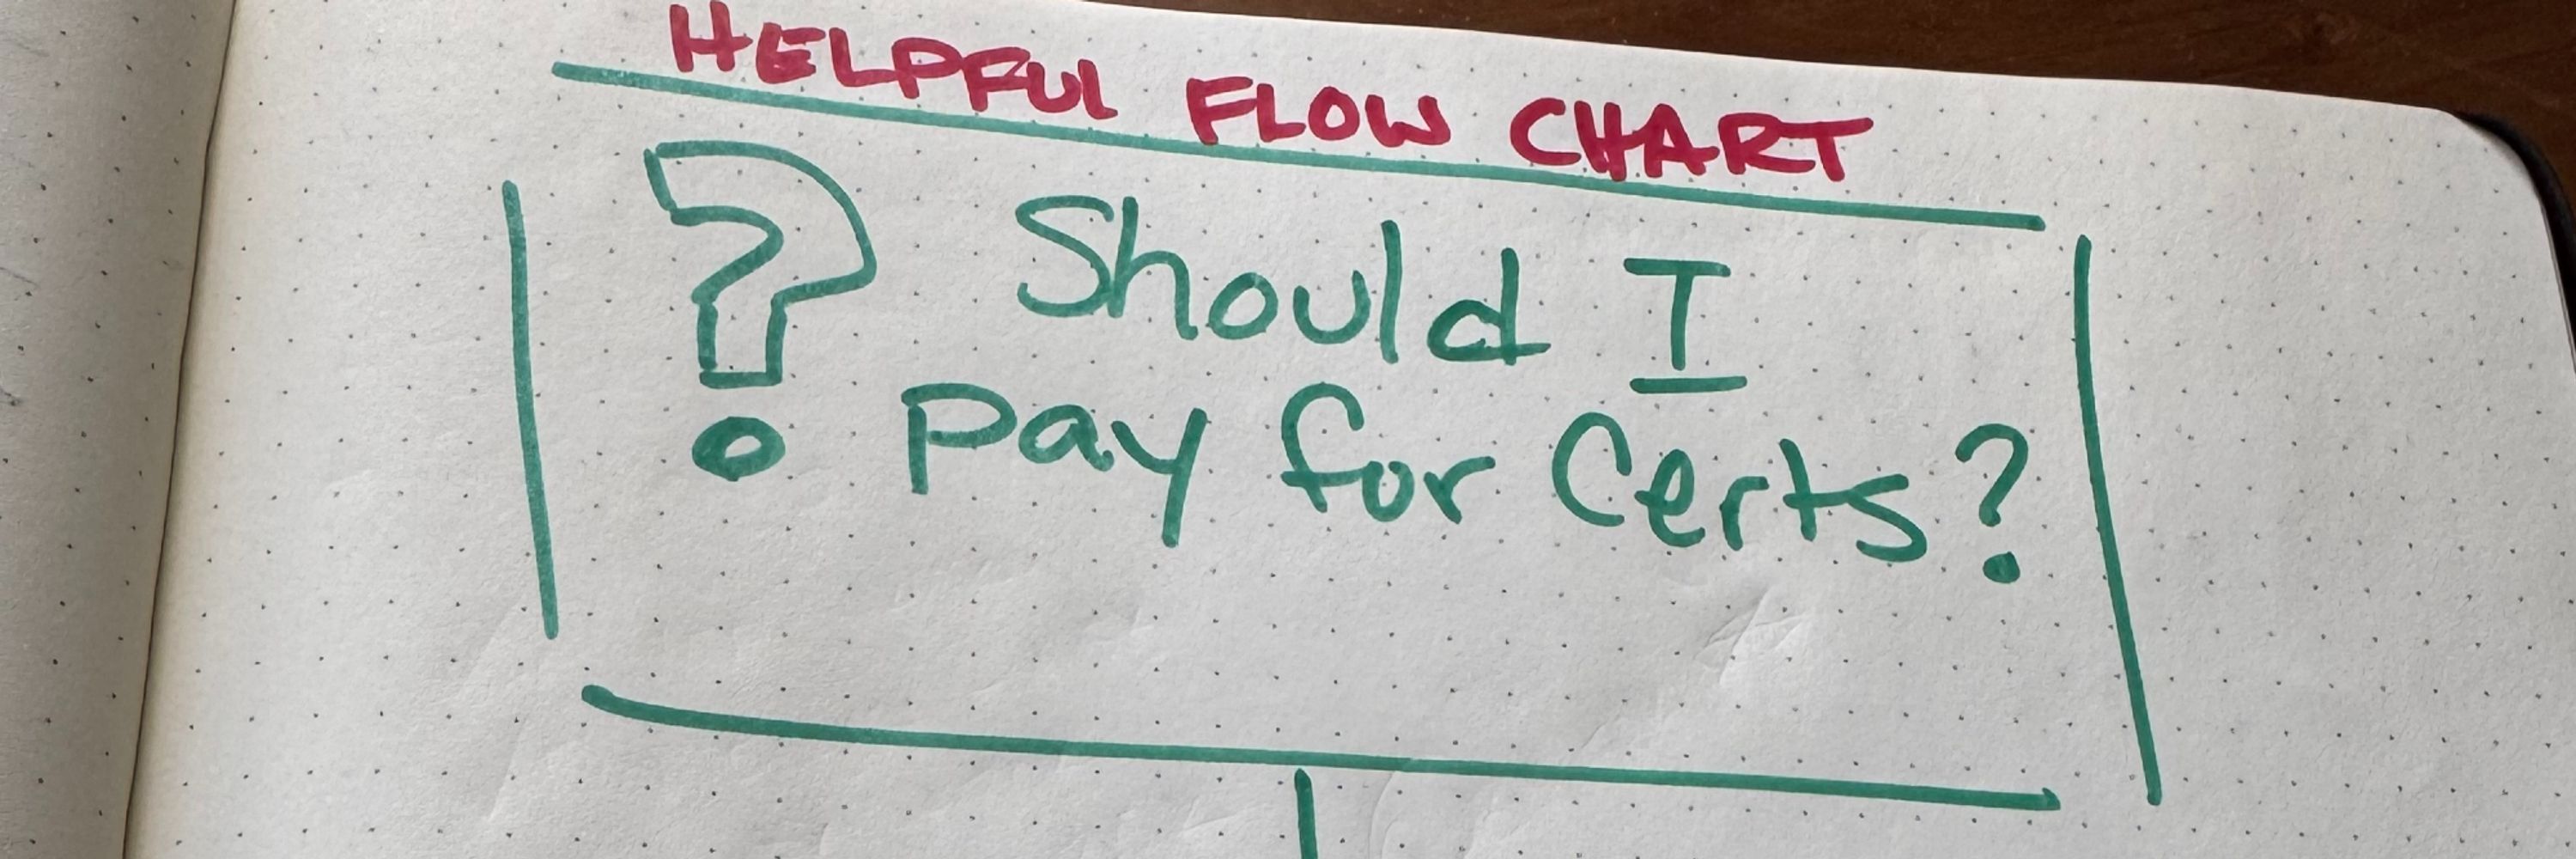 HELPFUL FLOW CHART
? Should I
Pay for Certs?